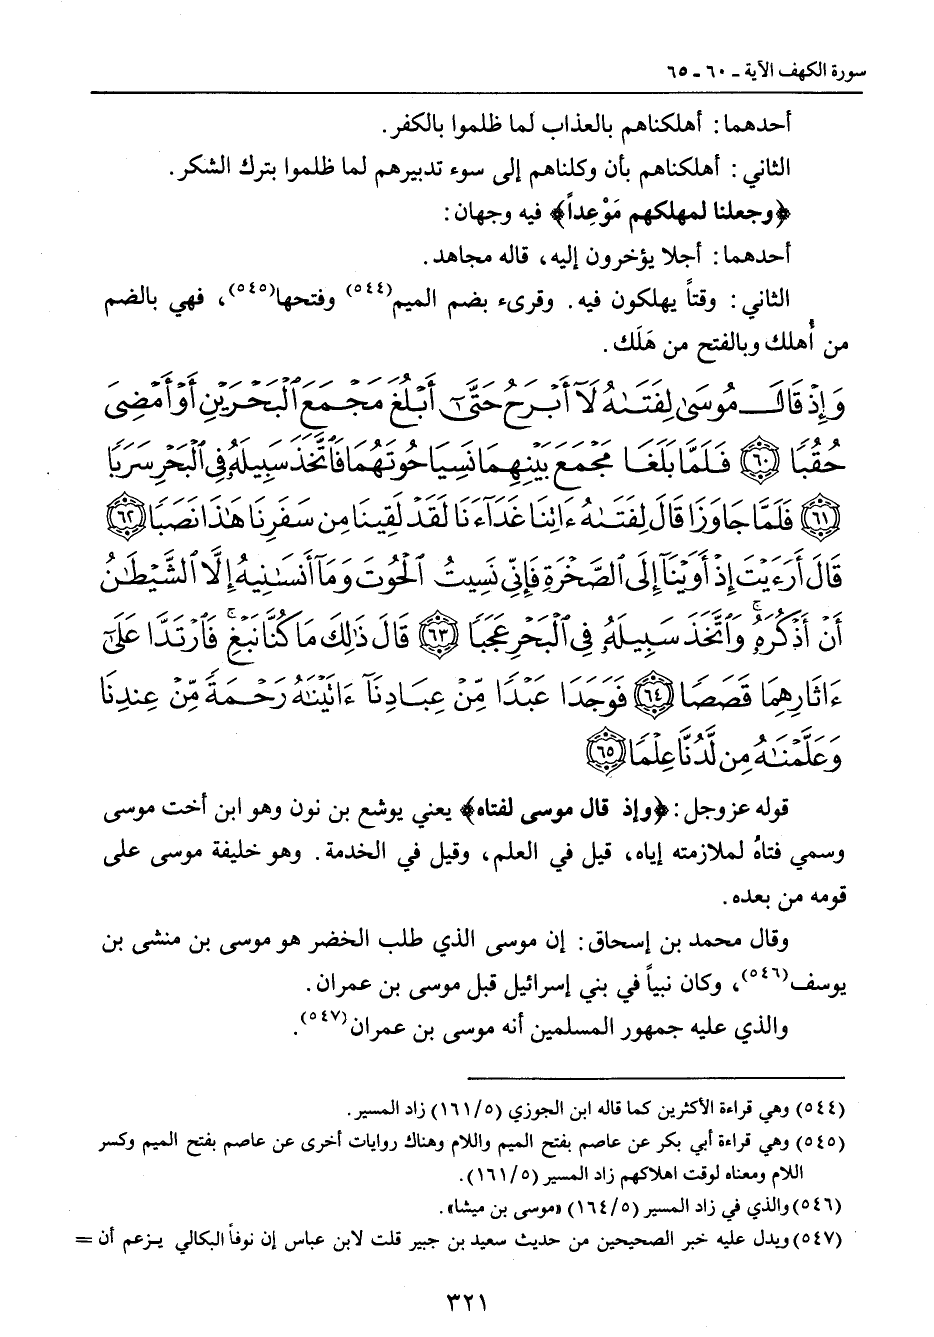 سورة الكهف الآية ـ ٦٠ ـ ٦٥
أحدهما: أهلكناهم بالعذاب لما ظلموا بالكفر.
الثاني: أهلكناهم بأن وكلناهم إلى سوء تدبيرهم لما ظلموا بترك الشكر.
﴿وجعلنا لمهلكهم مَوْعِداً﴾ فيه وجهان:
أحدهما: أجلا يؤخرون إليه، قاله مجاهد.
الثاني: وقتاً يهلكون فيه. وقرىء بضم الميم(٥٤٤) وفتحها(٥٤٥)، فهي بالضم
من أُهلك وبالفتح من هَلَك.
وَإِذْ قَالَ مُوسَىٰ لِفَتَىٰهُ لَآ أَبْرَحُ حَتَّىٰٓ أَبْلُغَ مَجْمَعَ ٱلْبَحْرَيْنِ أَوْ أَمْضِىَ
حُقُبًا ٦٠ فَلَمَّا بَلَغَا مَجْمَعَ بَيْنِهِمَا نَسِيَا حُوتَهُمَا فَٱتَّخَذَ سَبِيلَهُۥ فِى ٱلْبَحْرِ سَرَبًا
٦١ فَلَمَّا جَاوَزَا قَالَ لِفَتَىٰهُ ءَاتِنَا غَدَآءَنَا لَقَدْ لَقِينَا مِن سَفَرِنَا هَٰذَا نَصَبًا ٦٢
قَالَ أَرَءَيْتَ إِذْ أَوَيْنَآ إِلَى ٱلصَّخْرَةِ فَإِنِّى نَسِيتُ ٱلْحُوتَ وَمَآ أَنسَىٰنِيهُ إِلَّا ٱلشَّيْطَٰنُ
أَنْ أَذْكُرَهُۥ ۚ وَٱتَّخَذَ سَبِيلَهُۥ فِى ٱلْبَحْرِ عَجَبًا ٦٣ قَالَ ذَٰلِكَ مَا كُنَّا نَبْغِ ۚ فَٱرْتَدَّا عَلَىٰٓ
ءَاثَارِهِمَا قَصَصًا ٦٤ فَوَجَدَا عَبْدًا مِّنْ عِبَادِنَآ ءَاتَيْنَٰهُ رَحْمَةً مِّنْ عِندِنَا
وَعَلَّمْنَٰهُ مِن لَّدُنَّا عِلْمًا ٦٥
قوله عز وجل: ﴿وإذ قال موسى لفتاه﴾ يعني يوشع بن نون وهو ابن أخت موسى
وسمي فتاهُ لملازمته إياه، قيل في العلم، وقيل في الخدمة. وهو خليفة موسى على
قومه من بعده.
وقال محمد بن إسحاق: إن موسى الذي طلب الخضر هو موسى بن منشى بن
يوسف(٥٤٦)، وكان نبياً في بني إسرائيل قبل موسى بن عمران.
والذي عليه جمهور المسلمين أنه موسى بن عمران(٥٤٧).
(٥٤٤) وهي قراءة الأكثرين كما قاله ابن الجوزي (١٦١/٥) زاد المسير.
(٥٤٥) وهي قراءة أبي بكر عن عاصم بفتح الميم واللام وهناك روايات أخرى عن عاصم بفتح الميم وكسر
اللام ومعناه لوقت اهلاكهم زاد المسير (١٦١/٥).
(٥٤٦) والذي في زاد المسير (١٦٤/٥) «موسى بن ميشا».
(٥٤٧) ويدل عليه خبر الصحيحين من حديث سعيد بن جبير قلت لابن عباس إن نوفاً البكالي يزعم أن =
٣٢١